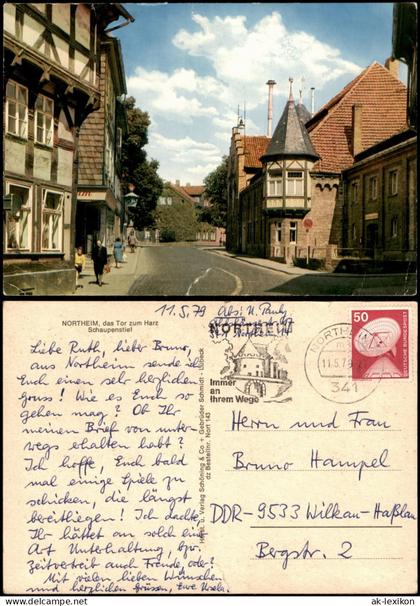 NORTHEIM, das Tor zum Harz
Schaupenstiel
11.5.79
Abs: U. Pauly
Liebe Ruth, lieber Bruno,
aus Northeim sende ich
Euch einen sehr herzlichen
Gruss! Wie es Euch so
gehen mag? Ob Ihr
meinen Brief von unter-
wegs erhalten habt?
Ich hoffe, Euch bald
mal einige Spiele zu
schicken, die längst
bereitliegen! Ich dachte,
Ihr hättet an solch einer
Art Unterhaltung, bzw.
Zeitvertreib auch Freude, oder?
Mit vielen lieben Wünschen
und herzlichen Grüssen, Eure Ursula.
Herst. u. Verlag Schöning & Co + Gebrüder Schmidt - Lübeck
dz Bestellnr. Nort 143
NORTHEIM
Immer
an
Ihrem Wege
NORTHEIM
11.5.79
341
50
DEUTSCHE BUNDESPOST
Herrn und Frau
Bruno Hampel
DDR-9533 Wilkau-Haßlau
Bergstr. 2
© ak-ansichtskarten.de
ak-lexikon.com